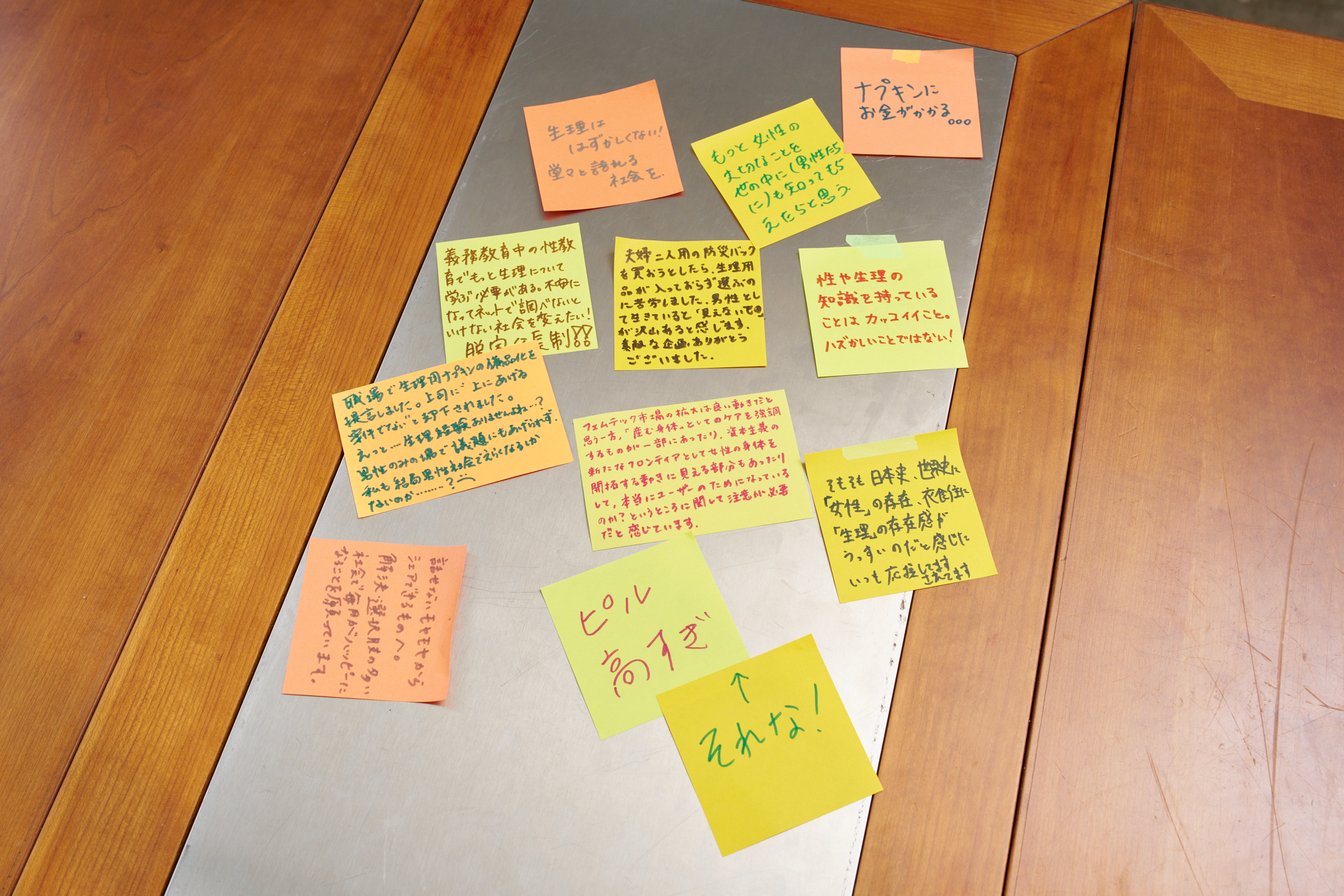 生理は
はずかしくない!
堂々と語れる
社会を.
もっと女性の
大切なことを
世の中に(男性たち
に)も知ってもら
えたらと思う.
ナプキンに
お金がかかる...
義務教育中の性教
育でもっと生理について
学ぶ必要がある。不安に
なってネットで調べないと
いけない社会を変えたい!
夫婦二人用の防災バック
を買おうとしたら、生理用
品が入っておらず選ぶの
に苦労しました。男性とし
て生きていると「見えないもの」
が沢山あると感じます.
素敵な企画、ありがとう
ございました.
性や生理の
知識を持っている
ことはカッコイイこと。
ハズかしいことではない!
職場で生理用ナプキンの備品化を
提言しました。上司に“上にあげる
案件でない”と却下されました。
えっと…生理経験おありませんよね…?
男性のみの場で議題にもあげられず、
私も結局男性社会でえらくなるしか
ないのか………?
フェムテック市場の拡大は良い動きだと
思う一方、「産む身体」としてのケアを強調
するものが一部にあったり、資本主義の
新たなフロンティアとして女性の身体を
開拓する動きに見える部分もあったり
して、本当にユーザーのためになっている
のか?というところに関して注意が必要
だと感じています.
そもそも日本史、世界史に
「女性」の存在、衣食住に
「生理」の存在感が
うっすいのだと感じた
いつも応援してます
されてます
話せないモヤモヤから
シェアできるものへ。
解決選択肢の多い
社会で毎月がハッピーに
なることを願っています。
ピル
高すぎ
↑
それな!